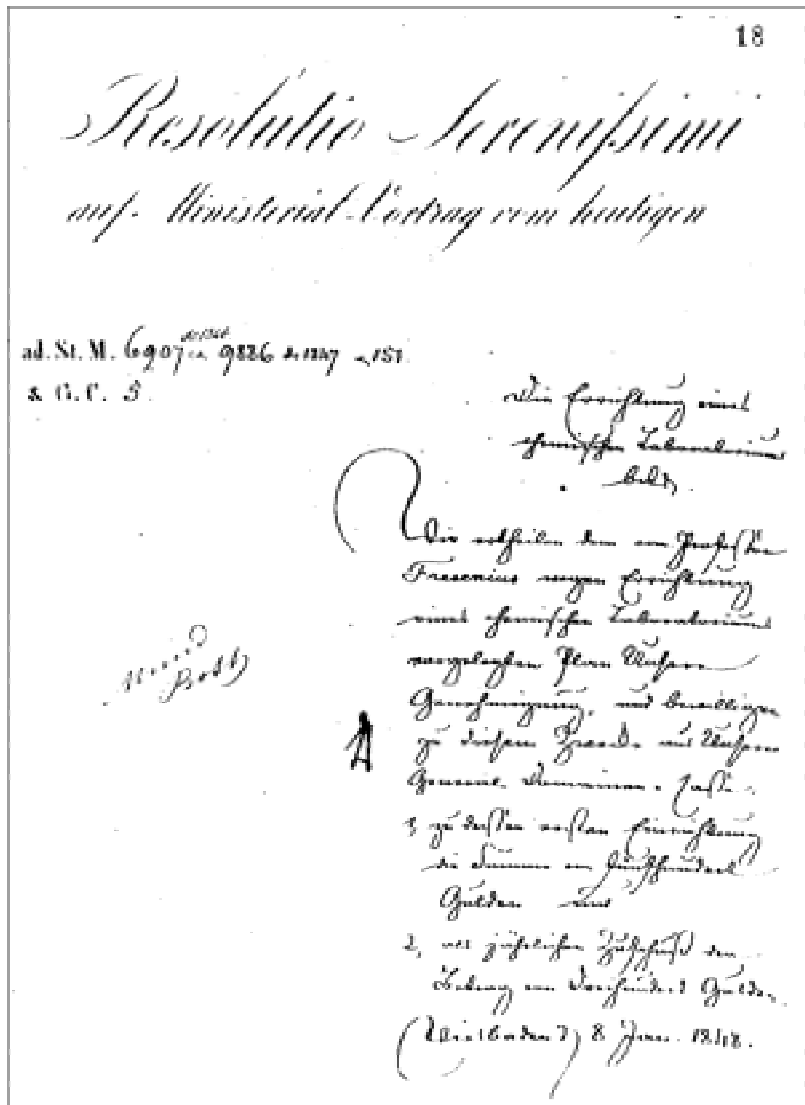 18
Resolutio Serenissimi
auf Ministerial-Vortrag vom heutigen
ad. St. M. 6907 9826 de 1847 151
& G. C. 5
Die Errichtung eines
chemischen Laboratoriums
betr.
Wir ertheilen dem von Professor
Fresenius wegen Errichtung
eines chemischen Laboratoriums
vorgelegten Plan Unsere
Genehmigung, und bewilligen
zu diesem Zwecke aus Unserer
General-Domainen-Casse
1, zu dessen ersten Einrichtung
die Summe von fünfhundert
Gulden und
2, als jährlichen Zuschuß den
Betrag von dreihundert Gulden
Wiesbaden 8 Jan. 1848.